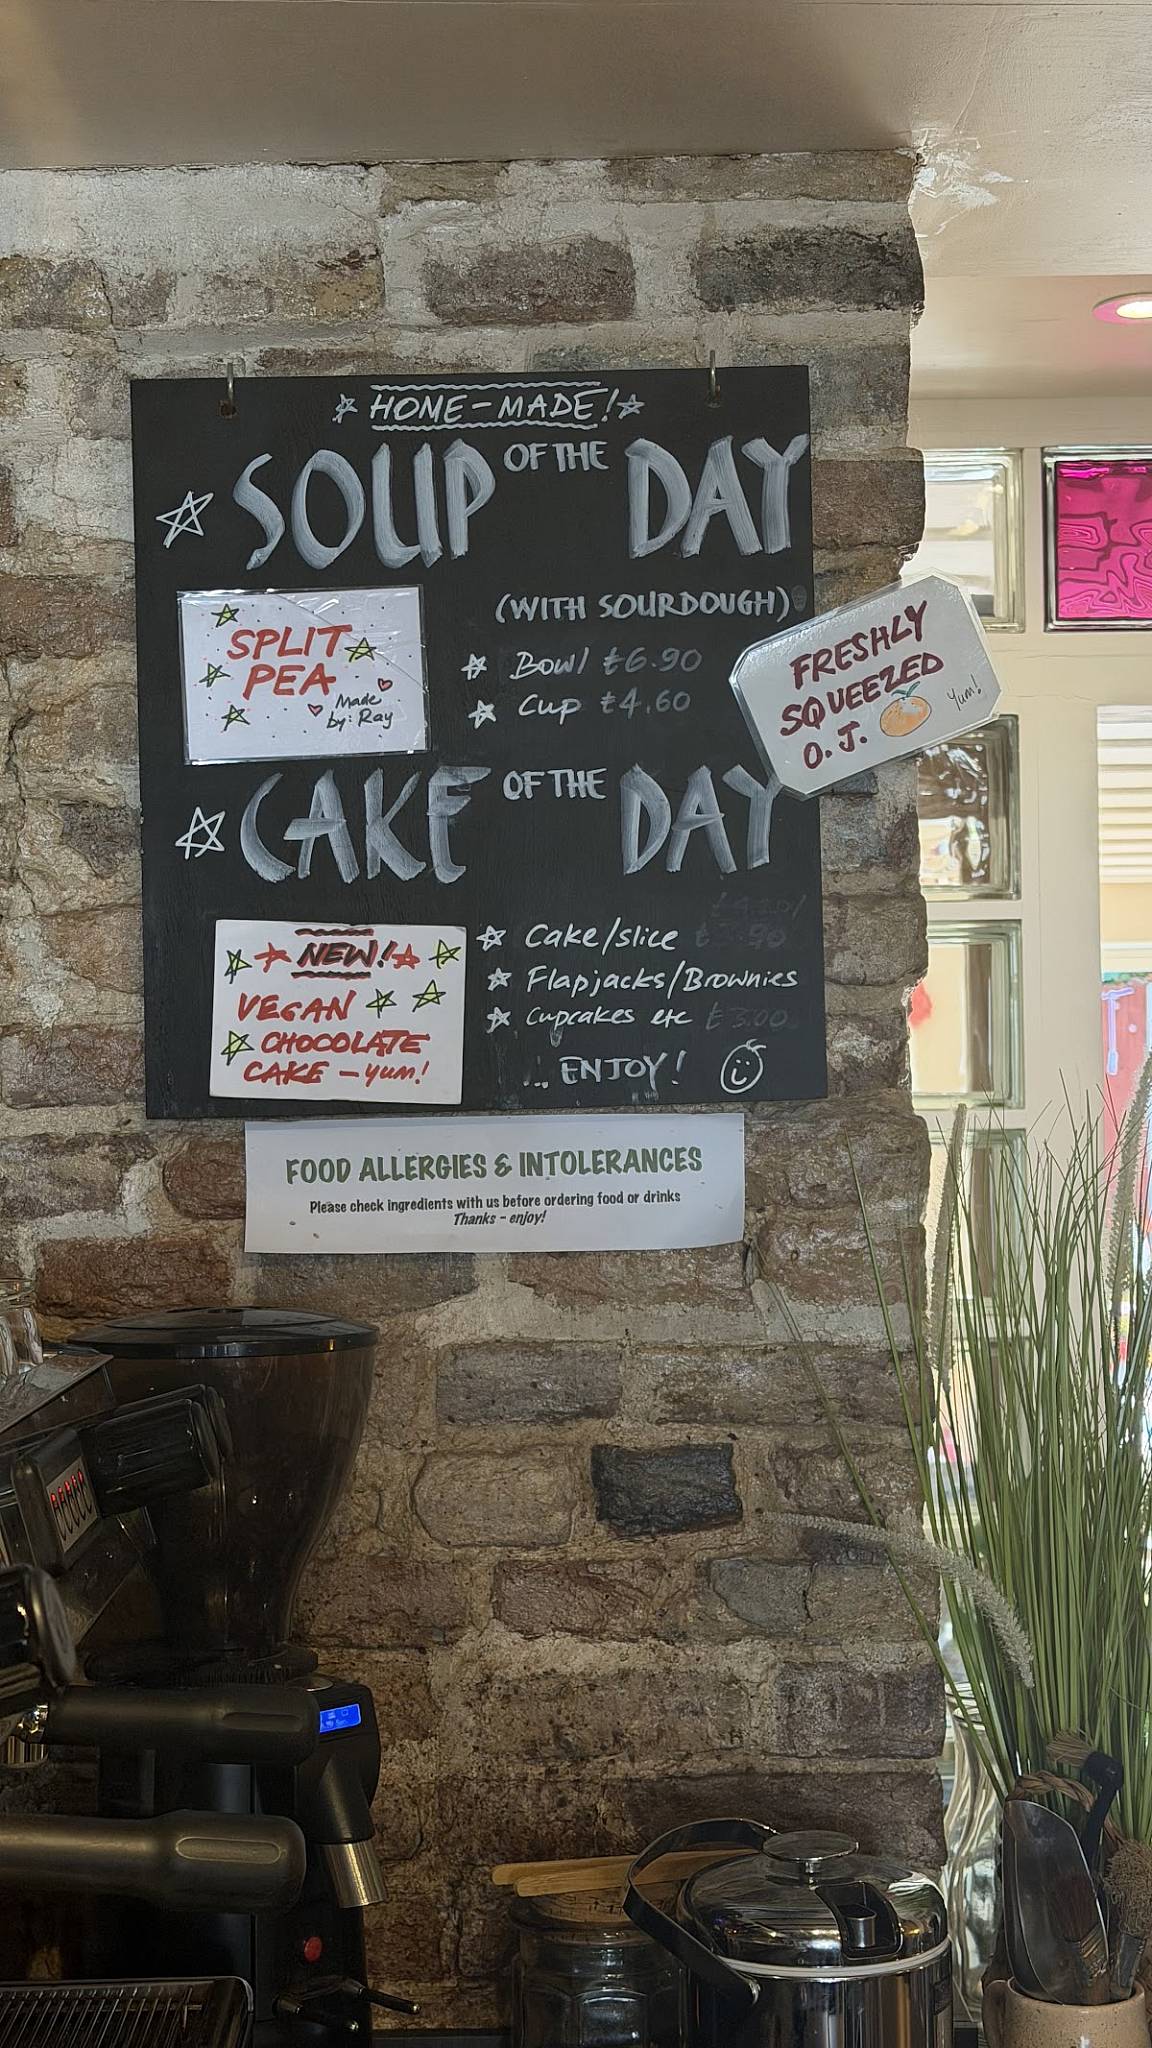 HOME-MADE!
SOUP OF THE DAY
SPLIT
PEA
Made
by: Ray
(WITH SOURDOUGH)
Bowl £6.90
Cup £4.60
FRESHLY
SQUEEZED
O.J.
Yum!
CAKE OF THE DAY
NEW!
VEGAN
CHOCOLATE
CAKE - yum!
Cake/slice
Flapjacks/Brownies
Cupcakes etc £3.00
... ENJOY!
FOOD ALLERGIES & INTOLERANCES
Please check ingredients with us before ordering food or drinks
Thanks - enjoy!